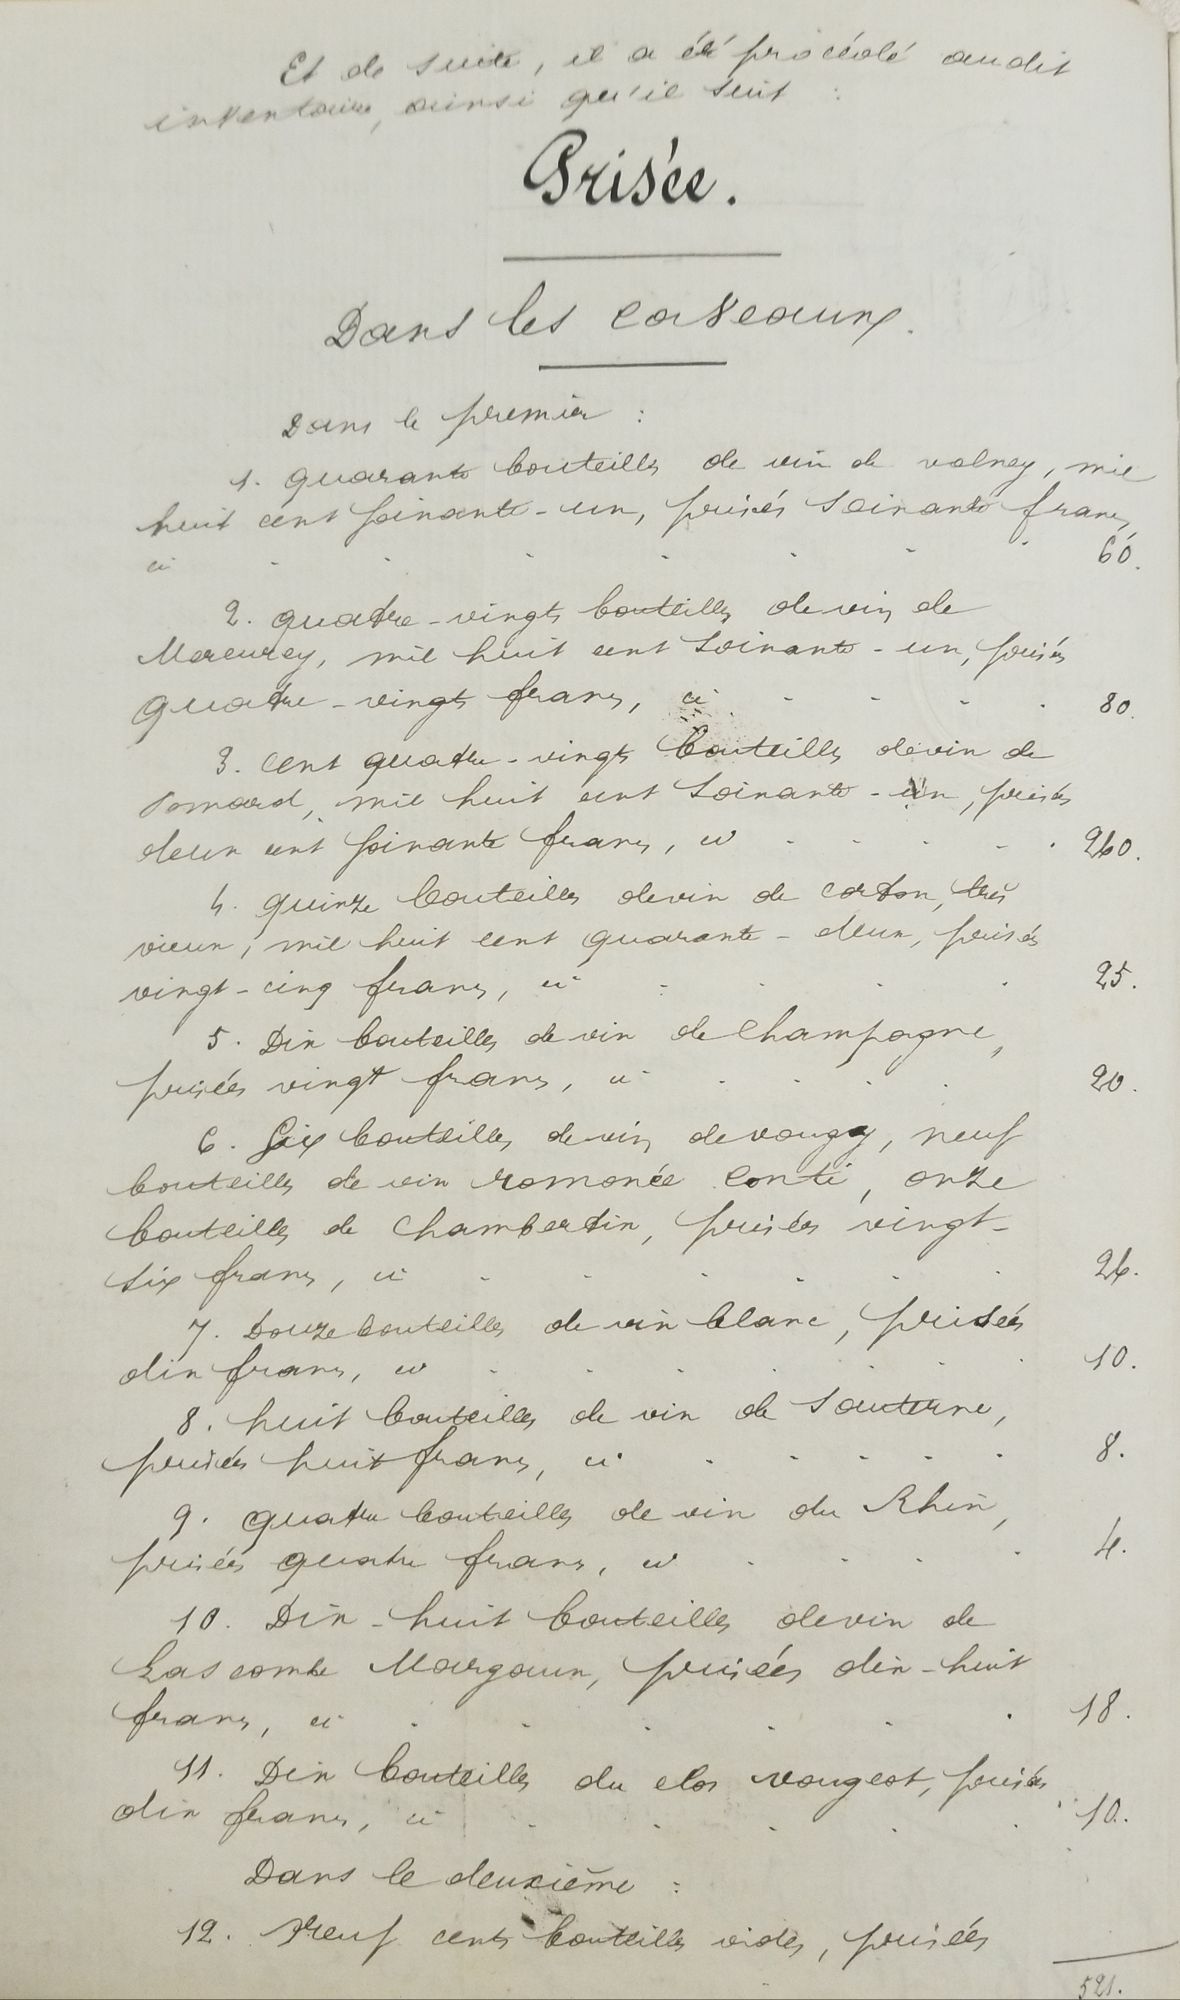 Et de suite, il a été procédé audit
inventaire, ainsi qu'il suit :
Prisée.
Dans les caveaux.
Dans le premier :
1. quarante bouteilles de vin de volney, mil
huit cent soixante-un, prisés soixante francs,
ci . . . . . . . 60.
2. quatre-vingts bouteilles de vin de
Mercurey, mil huit cent soixante-un, prisés
quatre-vingts francs, ci . . . . 80.
3. cent quatre-vingts bouteilles de vin de
Pomard, mil huit cent soixante-un, prisés
deux cent soixante francs, ci . . . . . 260.
4. quinze bouteilles de vin de corton, très
vieux, mil huit cent quarante-deux, prisés
vingt-cinq francs, ci . . . . 25.
5. Dix bouteilles de vin de Champagne,
prisées vingt francs, ci . . . . 20.
6. Six bouteilles de vin de vougy, neuf
bouteilles de vin romonée conti, onze
bouteilles de Chambertin, prisées vingt-
six francs, ci . . . . . . 26.
7. Douze bouteilles de vin blanc, prisées
dix francs, ci . . . . . . 10.
8. huit bouteilles de vin de Sauterne,
prisées huit francs, ci . . . . . 8.
9. quatre bouteilles de vin du Rhin,
prisées quatre francs, ci . . . . 4.
10. Dix-huit bouteilles de vin de
Lascombe Margaux, prisées dix-huit
francs, ci . . . . . . 18.
11. Dix bouteilles du clos vougeot, prisées
dix francs, ci . . . . . 10.
Dans le deuxième :
12. Neuf cents bouteilles vides, prisées
521.